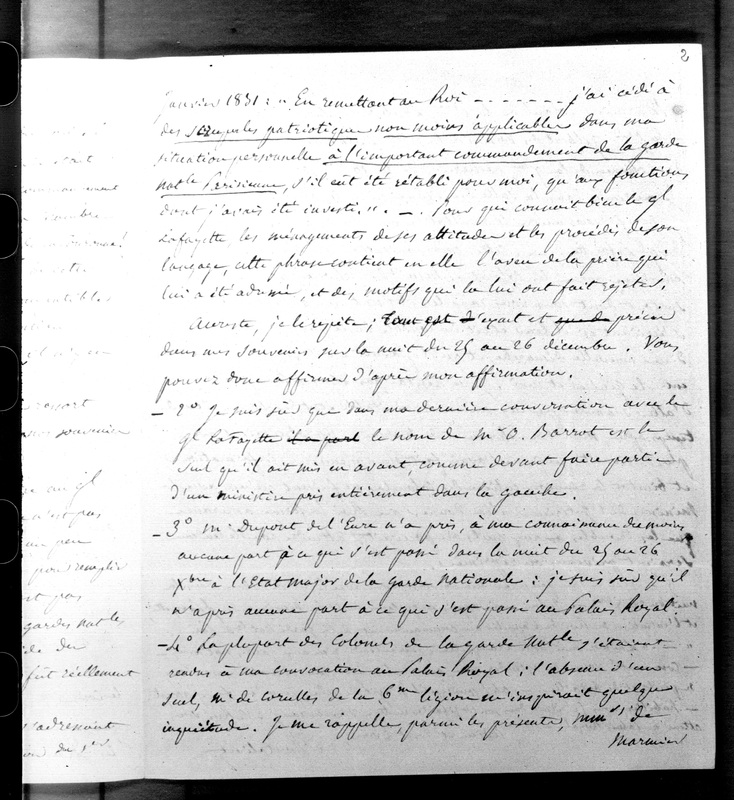 2
Janvier 1831 : « En remettant au Roi - - - - - - - j'ai cédé à
des scrupules patriotiques non moins applicables dans ma
situation personnelle à l'important commandement de la garde
natle Parisienne, s'il eût été rétabli pour moi, qu'aux fonctions
dont j'avais été investi. ». — . Pour qui connait bien le gl
Lafayette, les ménagements de ses attitudes et les procédés de son
langage, cette phrase contient en elle l'aveu de la prière qui
lui a été adressée, et des motifs qui la lui ont fait rejeter.
Au reste, je le répète ; tout est d'exact et que de précis
dans mes souvenirs sur la nuit du 25 au 26 décembre. Vous
pouvez donc affirmer d'après mon affirmation.
— 2° Je suis sûr que dans ma dernière conversation avec le
gl Lafayette il a parl le nom de Mr O. Barrot est le
seul qu'il ait mis en avant, comme devant faire partie
d'un ministère pris entièrement dans la gauche.
— 3° M. Dupont de l'Eure n'a pris, à ma connaissance du moins
aucune part à ce qui s'est passé dans la nuit du 25 au 26
Xbre à l'Etat Major de la garde nationale : je suis sûr qu'il
n'a pris aucune part à ce qui s'est passé au Palais Royal.
— 4° La plupart des Colonels de la garde natle s'étaient
rendus à ma convocation au Palais Royal ; l'absence d'un
seul, Mr de Corcelles de la 6me légion m'inspirait quelque
inquiétude. Je me rappelle, parmi les présents, mm. de
Marmier
ressort
mes souvenirs
au gl
n'est pas
un peu
pour remplir
pas
gardes natles
de du
fut réellement
s'adressant
du 1er